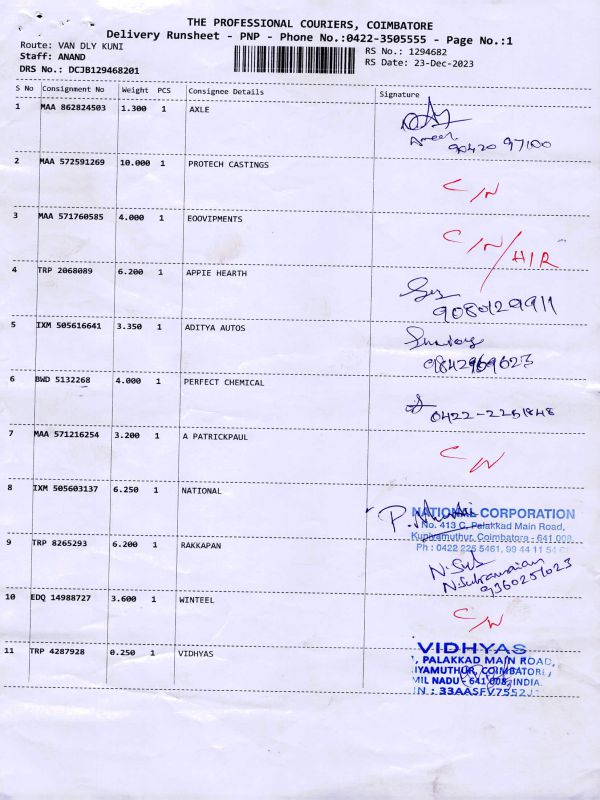 THE PROFESSIONAL COURIERS, COIMBATORE
Delivery Runsheet - PNP - Phone No.:0422-3505555 - Page No.:1
Route: VAN DLY KUNI
Staff: ANAND
DRS No.: DCJB129468201
RS No.: 1294682
RS Date: 23-Dec-2023
S No Consignment No Weight PCS Consignee Details Signature
1 MAA 862824503 1.300 1 AXLE
90420 97100
2 MAA 572591269 10.000 1 PROTECH CASTINGS C/N
3 MAA 571760585 4.000 1 EOOVIPMENTS C/N/HIR
4 TRP 2068089 6.200 1 APPIE HEARTH
9080129911
5 IXM 505616641 3.350 1 ADITYA AUTOS
9842969623
6 BWD 5132268 4.000 1 PERFECT CHEMICAL 0422-2251848
7 MAA 571216254 3.200 1 A PATRICKPAUL C/N
8 IXM 505603137 6.250 1 NATIONAL
NATIONAL CORPORATION
No. 413 C, Palakkad Main Road,
Kuniyamuthur, Coimbatore - 641 008
Ph : 0422 225 5461, 99 44 11 54
9 TRP 8265293 6.200 1 RAKKAPAN
N.Sub
N.Subramaian
9360251023
10 EDQ 14988727 3.600 1 WINTEEL C/N
11 TRP 4287928 0.250 1 VIDHYAS
VIDHYAS
, PALAKKAD MAIN ROAD,
IYAMUTHUR, COIMBATORE,
MIL NADU - 641 008, INDIA.
IN : 33AASFV7552J